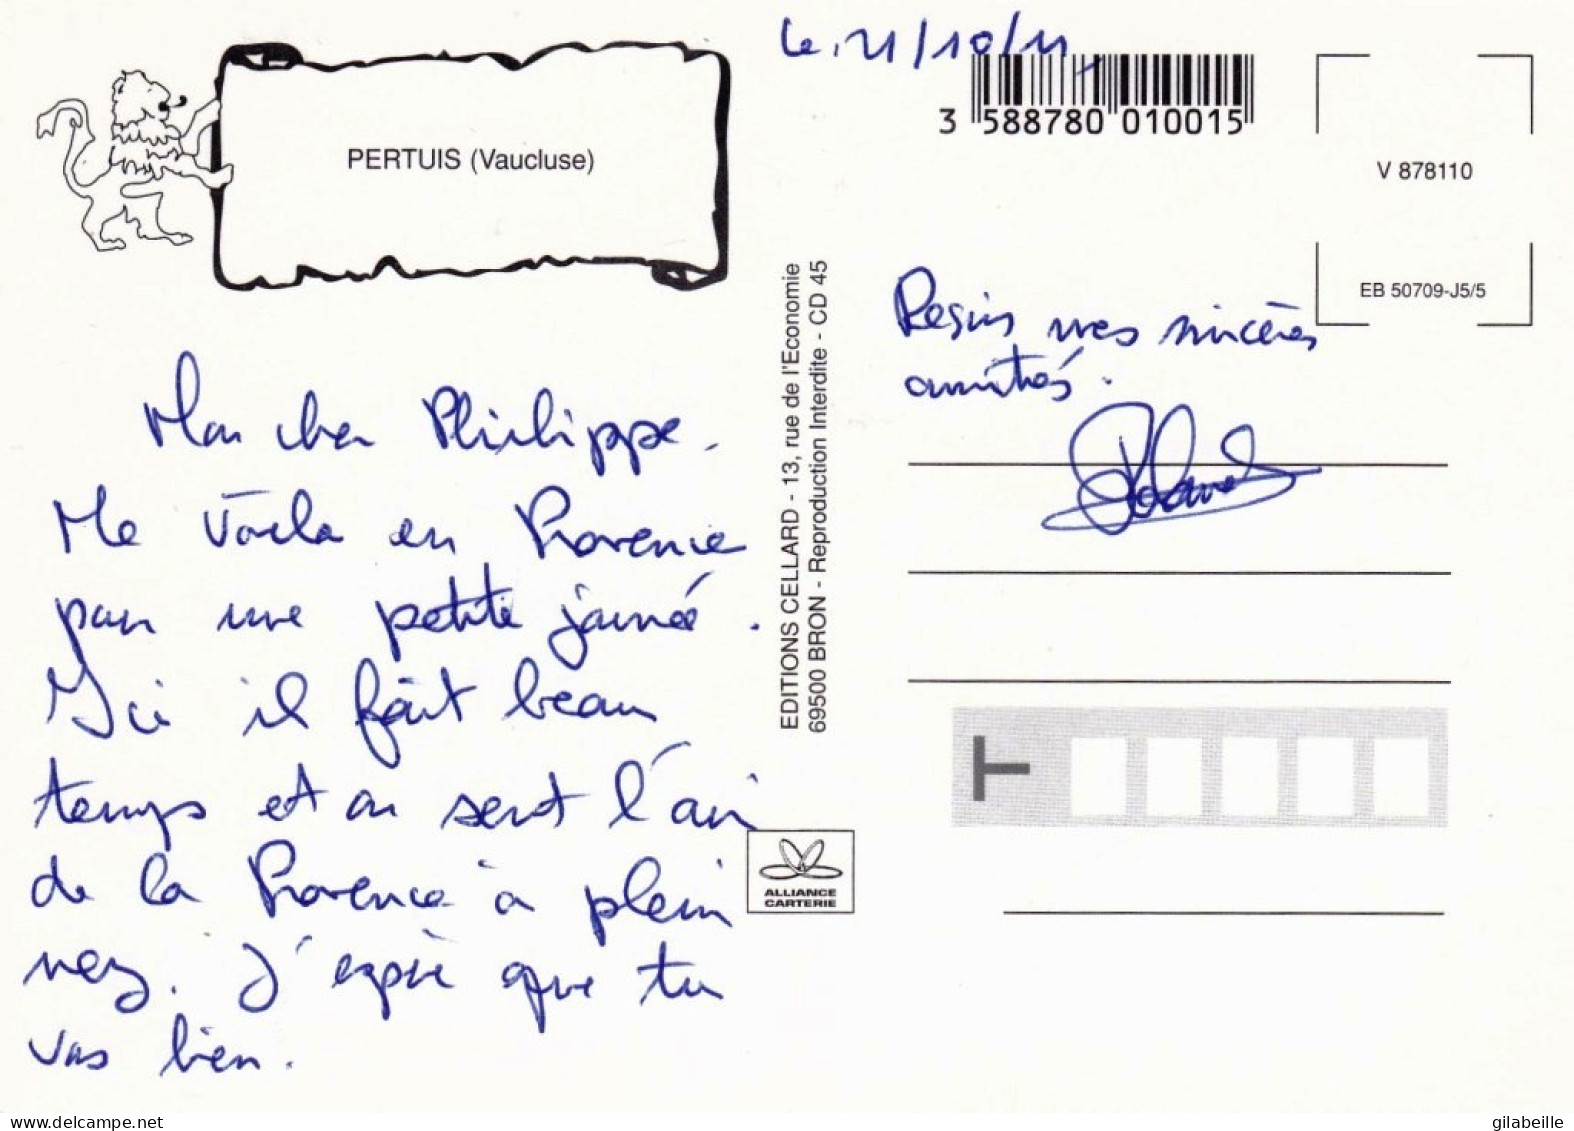 Le, 21/10/11,
3 588780 010015
PERTUIS (Vaucluse)
V 878110
EB 50709-J5/5
EDITIONS CELLARD - 13, rue de l'Economie
69500 BRON - Reproduction Interdite - CD 45
Mon cher Philippe.
Me voila en Provence
pour une petite journée.
Ici il fait beau
temps et on sent l'air
de la Provence à plein
nez. J'espère que tu
vas bien.
Reçois mes sincères
amitiés.
ALLIANCE
CARTERIE
www.delcampe.net
gilabeille